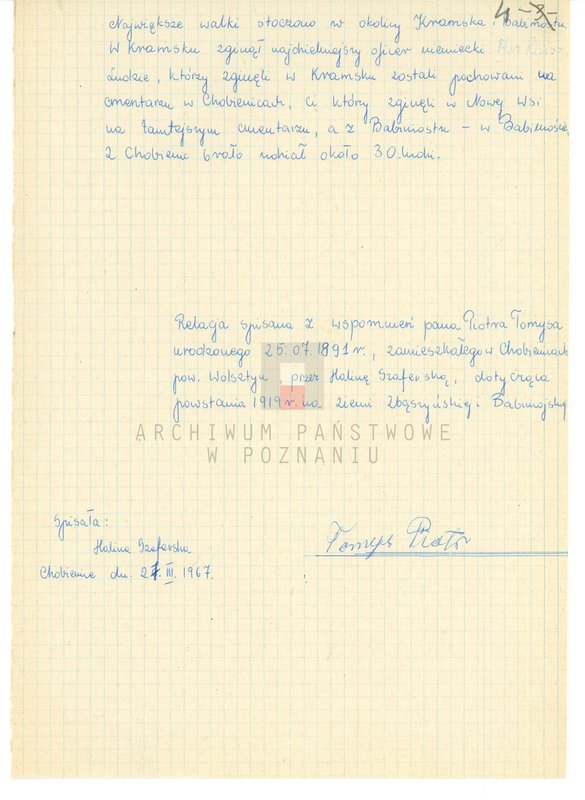 4
Największe walki stoczono w okolicy Kramska i Babimostu
W Kramsku zginął najdzielniejszy oficer niemiecki
Ludzie, którzy zginęli w Kramsku zostali pochowani na
cmentarzu w Chobienicach, ci który zginęli w Nowej Wsi
na tamtejszym cmentarzu, a z Babimostu - w Babimoście
Z Chobienic brało udział około 30 ludzi.
Relacja spisana z wspomnień pana Piotra Tomysa
urodzonego 25.07.1891 r., zamieszkałego w Chobienicach
pow. Wolsztyn, przez Halinę Szaferską, dotycząca
powstania 1919 r. na ziemi zbąszyńskiej i Babimojskiej
ARCHIWUM PAŃSTWOWE
W POZNANIU
Spisała:
Halina Szaferska
Tomys Piotr
Chobienice dn. 21. III. 1967.